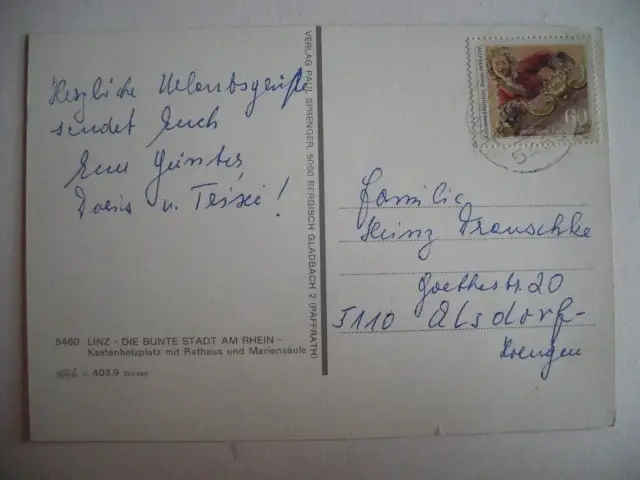 Herzliche Urlaubsgrüße
sendet Euch
Eure Günter
Doris u.
5460 LINZ - DIE BUNTE STADT AM RHEIN -
Kastenholzplatz mit Rathaus und Mariensäule
403.9
VERLAG PAUL SPRENGER, 5060 BERGISCH GLADBACH 2 (PAFFRATH)
60
54
Familie
Heinz Drauschke
Goethestr. 20
5110 Alsdorf-
Hoengen